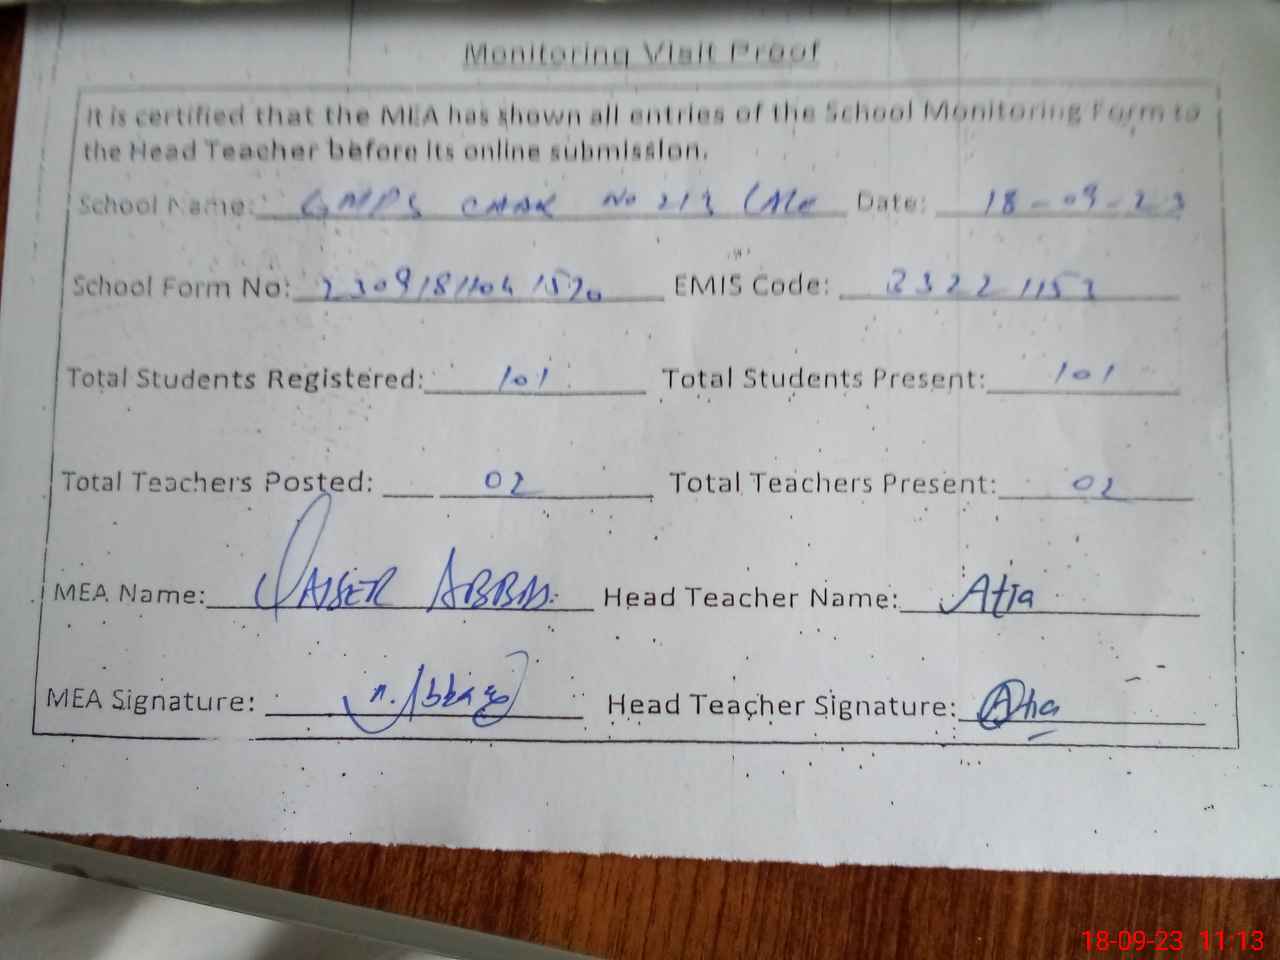 Monitoring Visit Proof
It is certified that the MEA has shown all entries of the School Monitoring Form to
the Head Teacher before its online submission.
School Name: GMPS CHAK No 213 Date: 18-09-23
School Form No: EMIS Code: 33221153
Total Students Registered: 101 Total Students Present: 101
Total Teachers Posted: 02 Total Teachers Present: 02
MEA Name: QAISER ABBAS. Head Teacher Name: Atia
MEA Signature: Head Teacher Signature: Atia
18-09-23 11:13